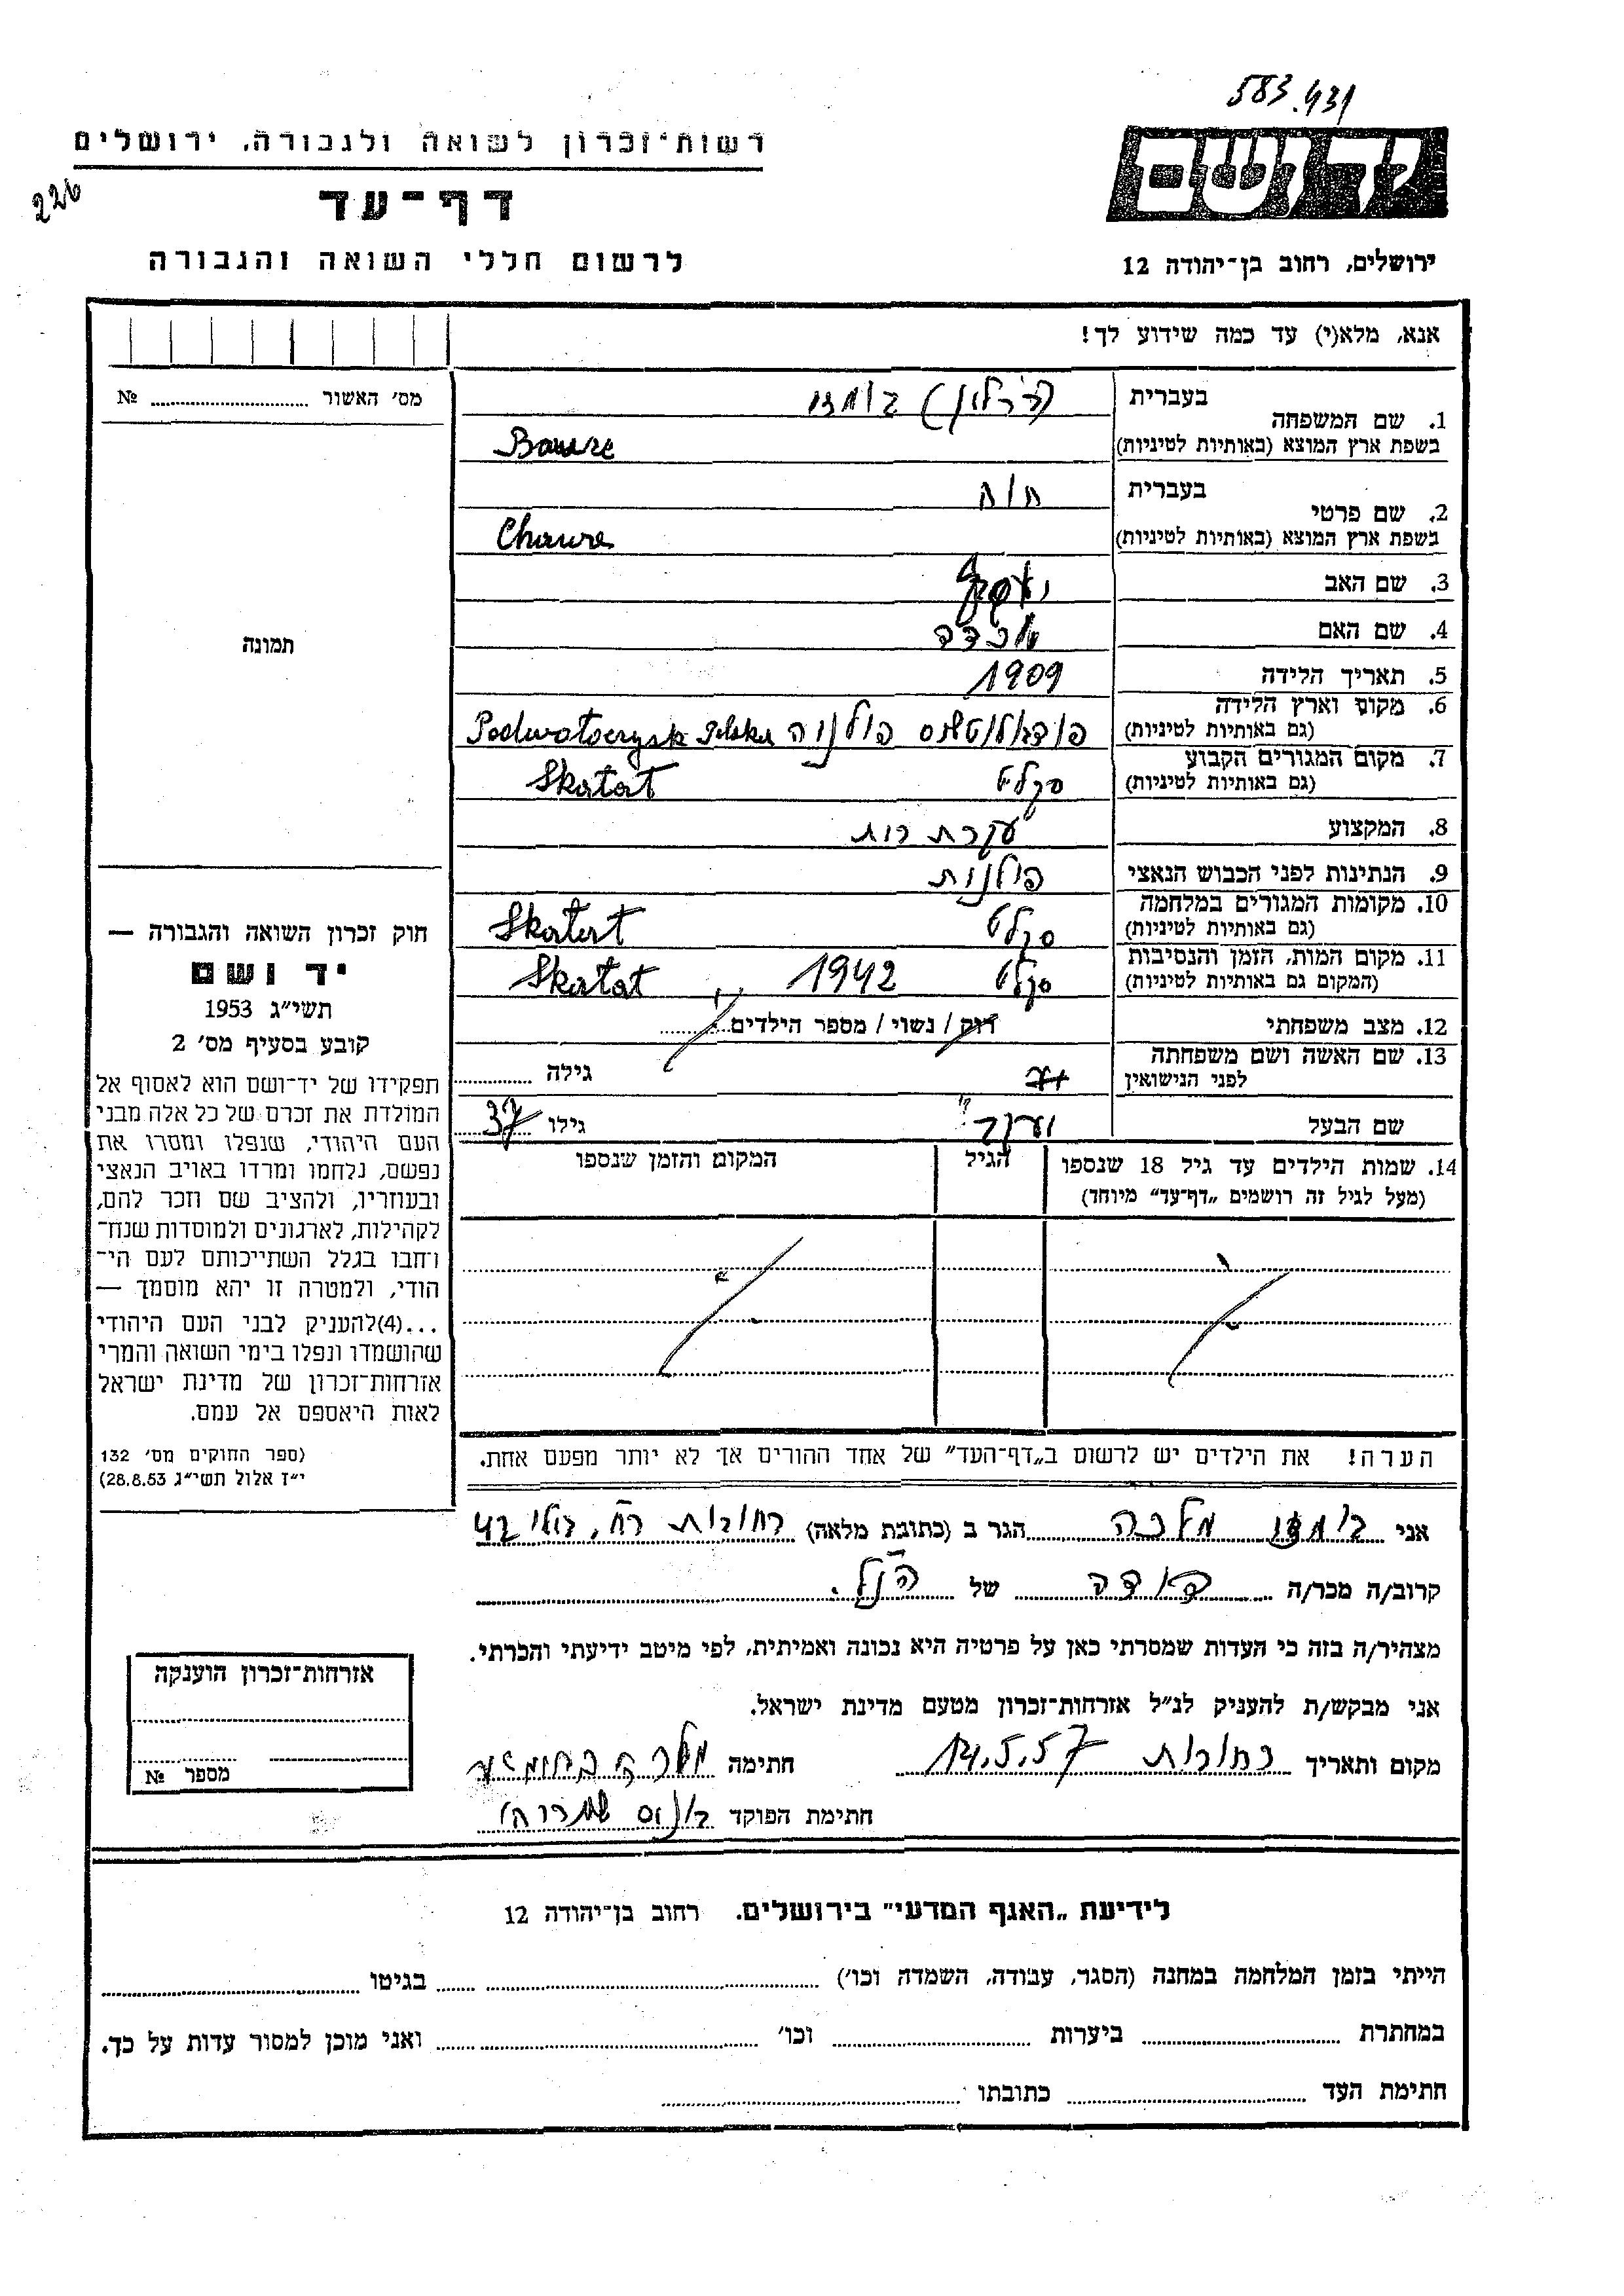 583.431
רשות-זכרון לשואה ולגבורה, ירושלים
226
דף-עד
לרשום חללי השואה והגבורה
יד ושם
ירושלים, רחוב בן-יהודה 12
אנא, מלא(י) עד כמה שידוע לך!
מס' האשור № 
1. שם המשפחה
בעברית
בשפת ארץ המוצא (באותיות לטיניות)
2. שם פרטי
בעברית חוה
בשפת ארץ המוצא (באותיות לטיניות)
3. שם האב יעקב
4. שם האם
5. תאריך הלידה 1909
6. מקום וארץ הלידה פולניה Polska
(גם באותיות לטיניות)
7. מקום המגורים הקבוע סקלט Skatat
(גם באותיות לטיניות)
8. המקצוע עקרת בית
9. הנתינות לפני הכבוש הנאצי פולנית
10. מקומות המגורים במלחמה סקלט Skatat
(גם באותיות לטיניות)
11. מקום המות, הזמן והנסיבות סקלט 1942 Skatat
(המקום גם באותיות לטיניות)
12. מצב משפחתי רוק / נשוי / מספר הילדים
13. שם האשה ושם משפחתה
לפני הנישואין
גילה
שם הבעל גילו 37
14. שמות הילדים עד גיל 18 שנספו
(מעל לגיל זה רושמים „דף-עד" מיוחד)
הגיל
המקום והזמן שנספו
תמונה
חוק זכרון השואה והגבורה —
יד ושם
תשי״ג 1953
קובע בסעיף מס' 2
תפקידו של יד-ושם הוא לאסוף אל
המולדת את זכרם של כל אלה מבני
העם היהודי, שנפלו ומסרו את
נפשם, נלחמו ומרדו באויב הנאצי
ובעוזריו, ולהציב שם וזכר להם,
לקהילות, לארגונים ולמוסדות שנח-
רבו בגלל השתייכותם לעם הי-
הודי, ולמטרה זו יהא מוסמך —
...(4) להעניק לבני העם היהודי
שהושמדו ונפלו בימי השואה והמרי
אזרחות-זכרון של מדינת ישראל
לאות היאספם אל עמם.
(ספר החוקים מס' 132
י״ז אלול תשי״ג 28.8.53)
הערה! את הילדים יש לרשום ב„דף-העד" של אחד ההורים אך לא יותר מפעם אחת.
אני מלכה הגר ב (כתובת מלאה) רחובות 42
קרוב/ה מכר/ה דודה של הנ"ל.
מצהיר/ה בזה כי העדות שמסרתי כאן על פרטיה היא נכונה ואמיתית, לפי מיטב ידיעתי והכרתי.
אני מבקש/ת להעניק לנ״ל אזרחות-זכרון מטעם מדינת ישראל.
מקום ותאריך רחובות 14.5.57 חתימה מלכה
חתימת הפוקד
אזרחות-זכרון הוענקה
מספר №
לידיעת „האגף המדעי" בירושלים. רחוב בן-יהודה 12
הייתי בזמן המלחמה במחנה (הסגר, עבודה, השמדה וכו') בגיטו
במחתרת ביערות וכו' ואני מוכן למסור עדות על כך.
חתימת העד כתובתו